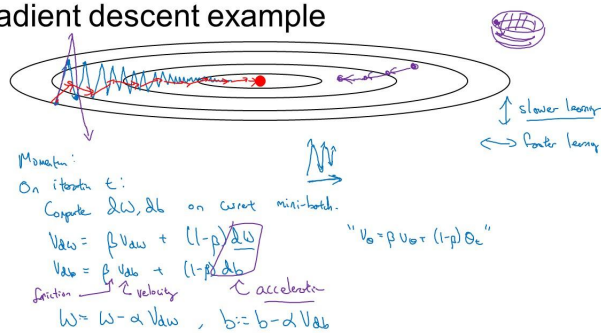 adient descent example
slower learning
faster learning
Momentum:
On iteration t:
Compute dW, db on current mini-batch.
Vdw = β Vdw + (1-β) dW
"Vθ = β Vθ + (1-β) θt"
Vdb = β Vdb + (1-β) db
friction velocity acceleration
W = W - α Vdw , b := b - α Vdb